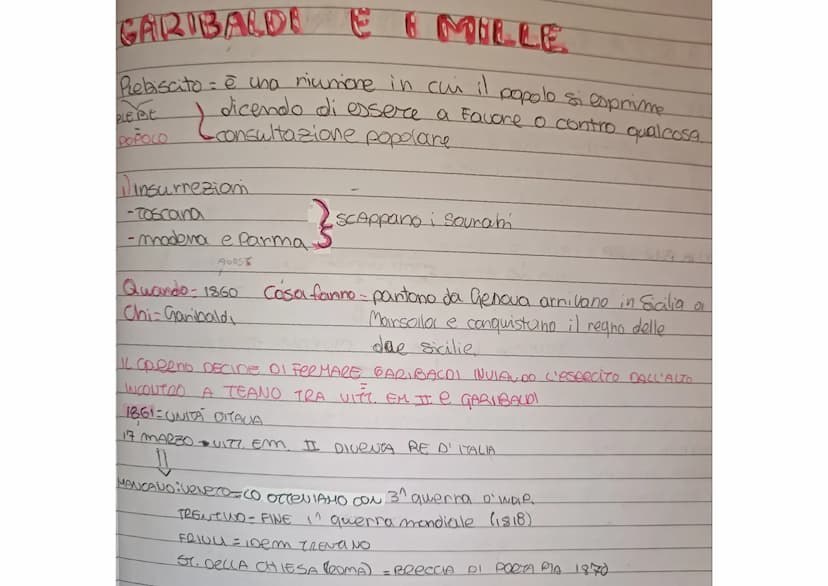 GARIBALDI E I MILLE
Plebiscito = è una riunione in cui il popolo si esprime
PLEBE dicendo di essere a favore o contro qualcosa
POPOLO consultazione popolare
1) Insurrezioni
- Toscana scappano i sovrani
- modena e Parma
Quando = 1860 Cosa fanno = partono da Genova arrivano in Sicilia a
Chi = Garibaldi Marsala e conquistano il regno delle
due sicilie
IL GOVERNO DECIDE DI FERMARE GARIBALDI INVIANDO L'ESERCITO DALL'ALTO
INCONTRO A TEANO TRA VITT. EM II e GARIBALDI
1861 = UNITÀ D'ITALIA
17 MARZO VITT. EM. II DIVENTA RE D'ITALIA
MANCANO: VENETO = LO OTTENIAMO CON 3^ guerra D'INDIP.
TRENTINO = FINE 1^ guerra mondiale (1918)
FRIULI = IDEM TRENTINO
ST. DELLA CHIESA (ROMA) = BRECCIA DI PORTA PIA 1870